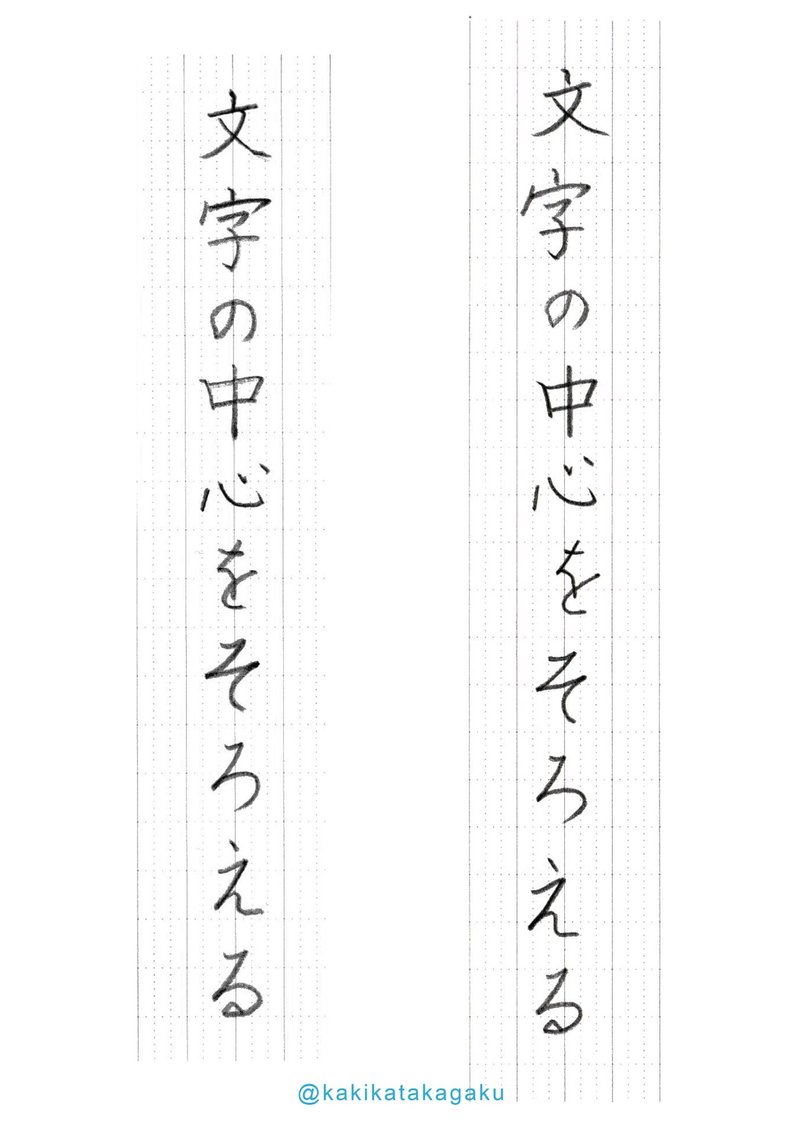 文字の中心をそろえる
文字の中心をそろえる
@kakikatakagaku